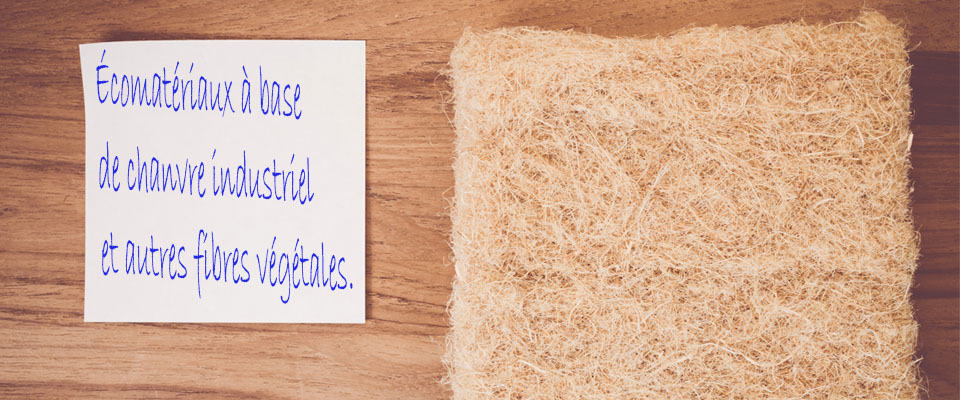 Écomatériaux à base
de chanvre industriel
et autres fibres végétales.